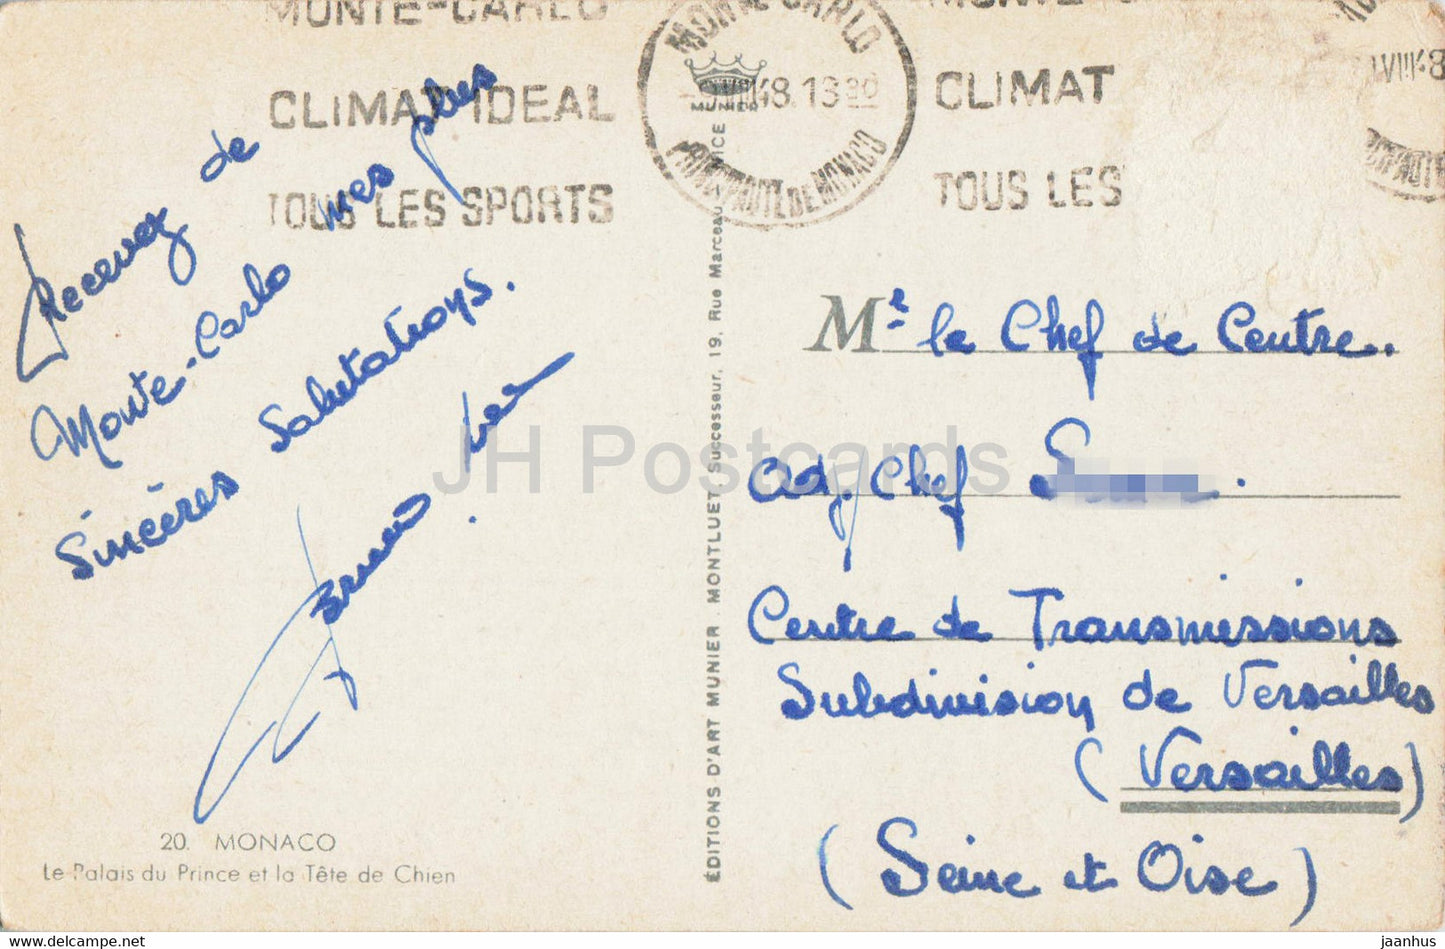 MONTE-CARLO
CLIMAT IDEAL
TOUS LES SPORTS
MONTE-CARLO
48.18 30
PRINCIPAUTE DE MONACO
MUNIER
CLIMAT
TOUS LES
VIII 48
Recevez de
Monte-Carlo mes plus
Sincères Salutations.
20. MONACO
Le Palais du Prince et la Tête de Chien
ÉDITIONS D'ART MUNIER . MONTLUET Successeur, 19, Rue Marceau, NICE
Mr le Chef de Centre.
Adj. Chef
Centre de Transmissions
Subdivision de Versailles
(Versailles)
(Seine et Oise)
JH Postcards
jaanhus / postcard.net